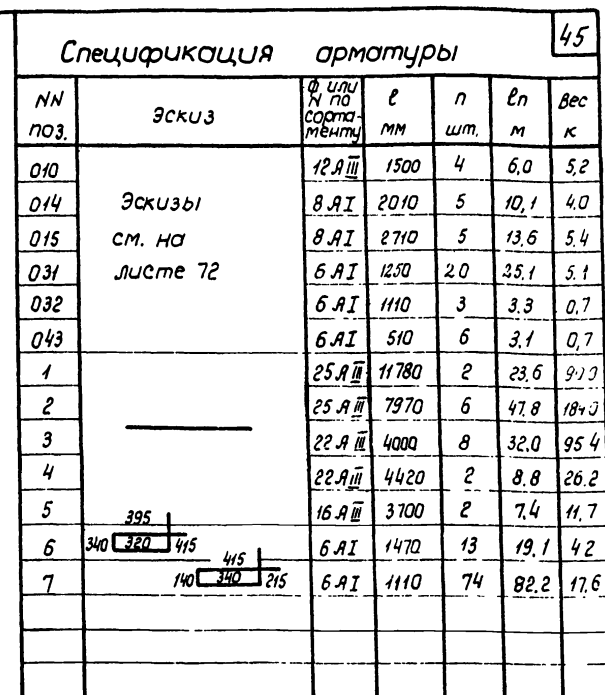 45
Спецификация арматуры
NN поз. Эскиз Ф или N по сортаменту ℓ мм n шт. ℓn м Вес к
010 12 А III 1500 4 6,0 5,2
014 Эскизы 8 А I 2010 5 10,1 4,0
015 см. на 8 А I 2710 5 13,6 5,4
031 листе 72 6 А I 1250 20 25,1 5.1
032 6 А I 1110 3 3.3 0,7
043 6 А I 510 6 3,1 0,7
1 25 А III 11780 2 23,6
2 25 А III 7970 6 47,8
3 22 А III 4000 8 32,0 95 4
4 22 А III 4420 2 8,8 26.2
5 16 А III 3700 2 7,4 11,7
395
6 340 320 415 6 А I 1470 13 19,1 4 2
415
7 140 340 215 6 А I 1110 74 82,2 17,6